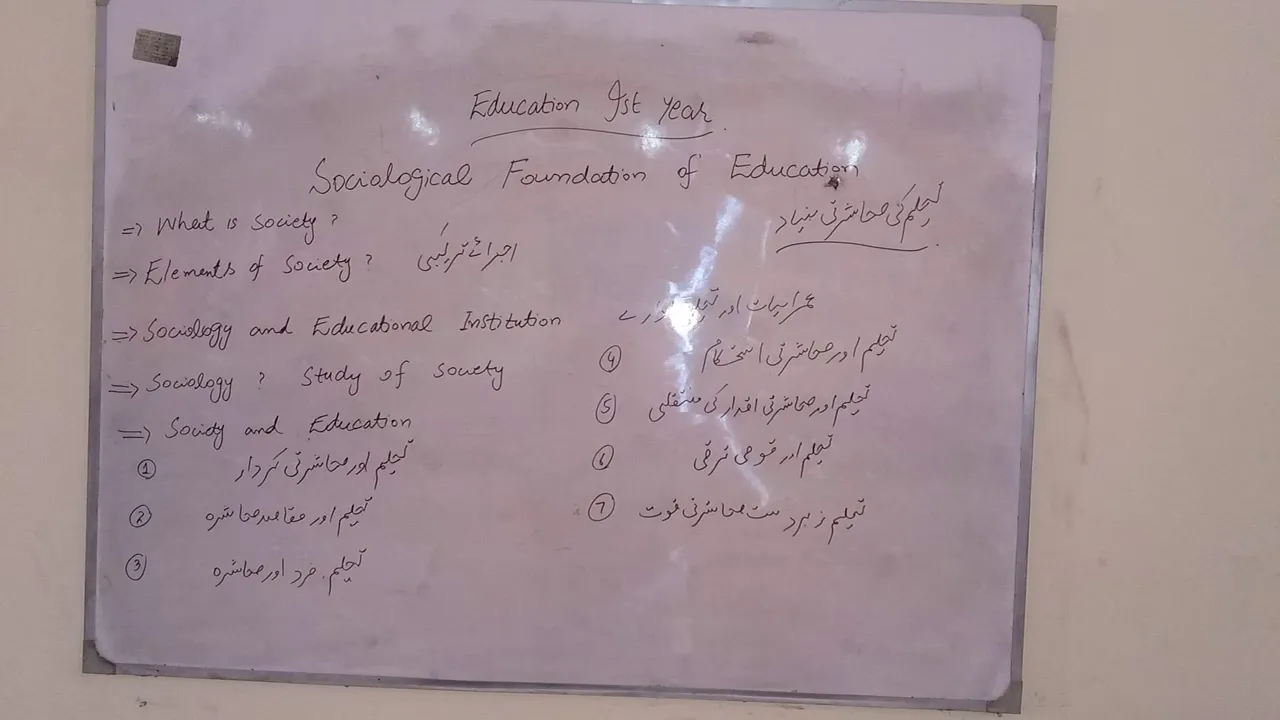 Education Ist Year
Sociological Foundation of Education
تعلیم کی معاشرتی بنیاد
=> What is Society?
=> Elements of Society? اجزائے ترکیبی
=> Sociology and Educational Institution عمرانیات اور
=> Sociology? Study of Society
=> Society and Education
① تعلیم اور معاشرتی کردار
② تعلیم اور مقاصد معاشرہ
③ تعلیم، فرد اور معاشرہ
④ تعلیم اور معاشرتی استحکام
⑤ تعلیم اور معاشرتی اقدار کی منتقلی
⑥ تعلیم اور قومی ترقی
⑦ تعلیم زبردست معاشرتی قوت